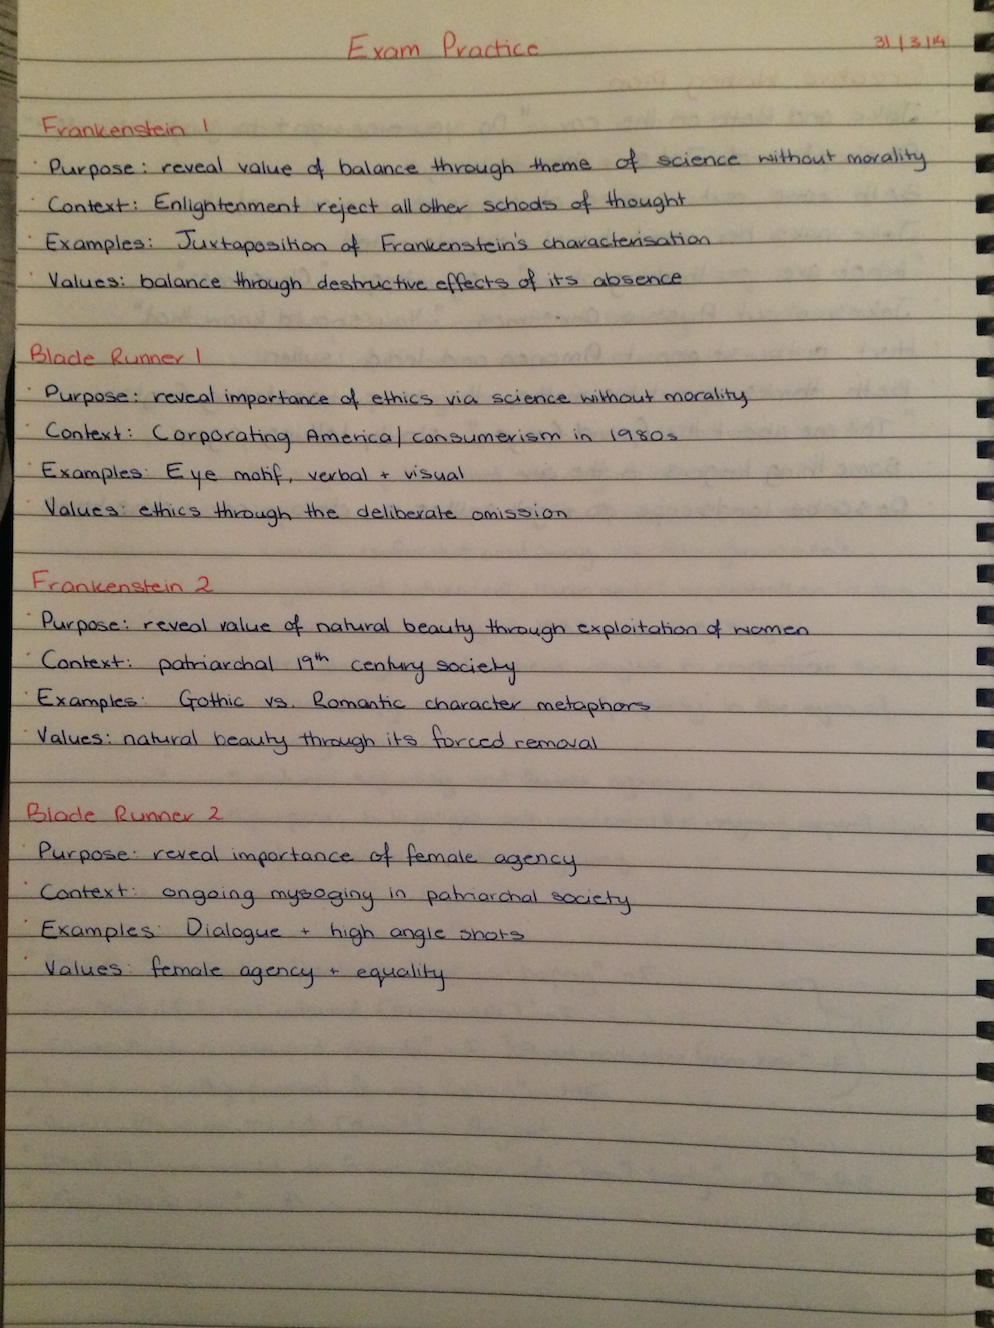 Exam Practice
31/3/14
Frankenstein 1
· Purpose: reveal value of balance through theme of science without morality
· Context: Enlightenment reject all other schools of thought
· Examples: Juxtaposition of Frankenstein's characterisation
· Values: balance through destructive effects of its absence
Blade Runner 1
· Purpose: reveal importance of ethics via science without morality
· Context: Corporating America/consumerism in 1980s
· Examples: Eye motif, verbal + visual
· Values: ethics through the deliberate omission
Frankenstein 2
· Purpose: reveal value of natural beauty through exploitation of women
· Context: patriarchal 19th century society
· Examples: Gothic vs. Romantic character metaphors
· Values: natural beauty through its forced removal
Blade Runner 2
· Purpose: reveal importance of female agency
· Context: ongoing mysoginy in patriarchal society
· Examples: Dialogue + high angle shots
· Values: female agency + equality